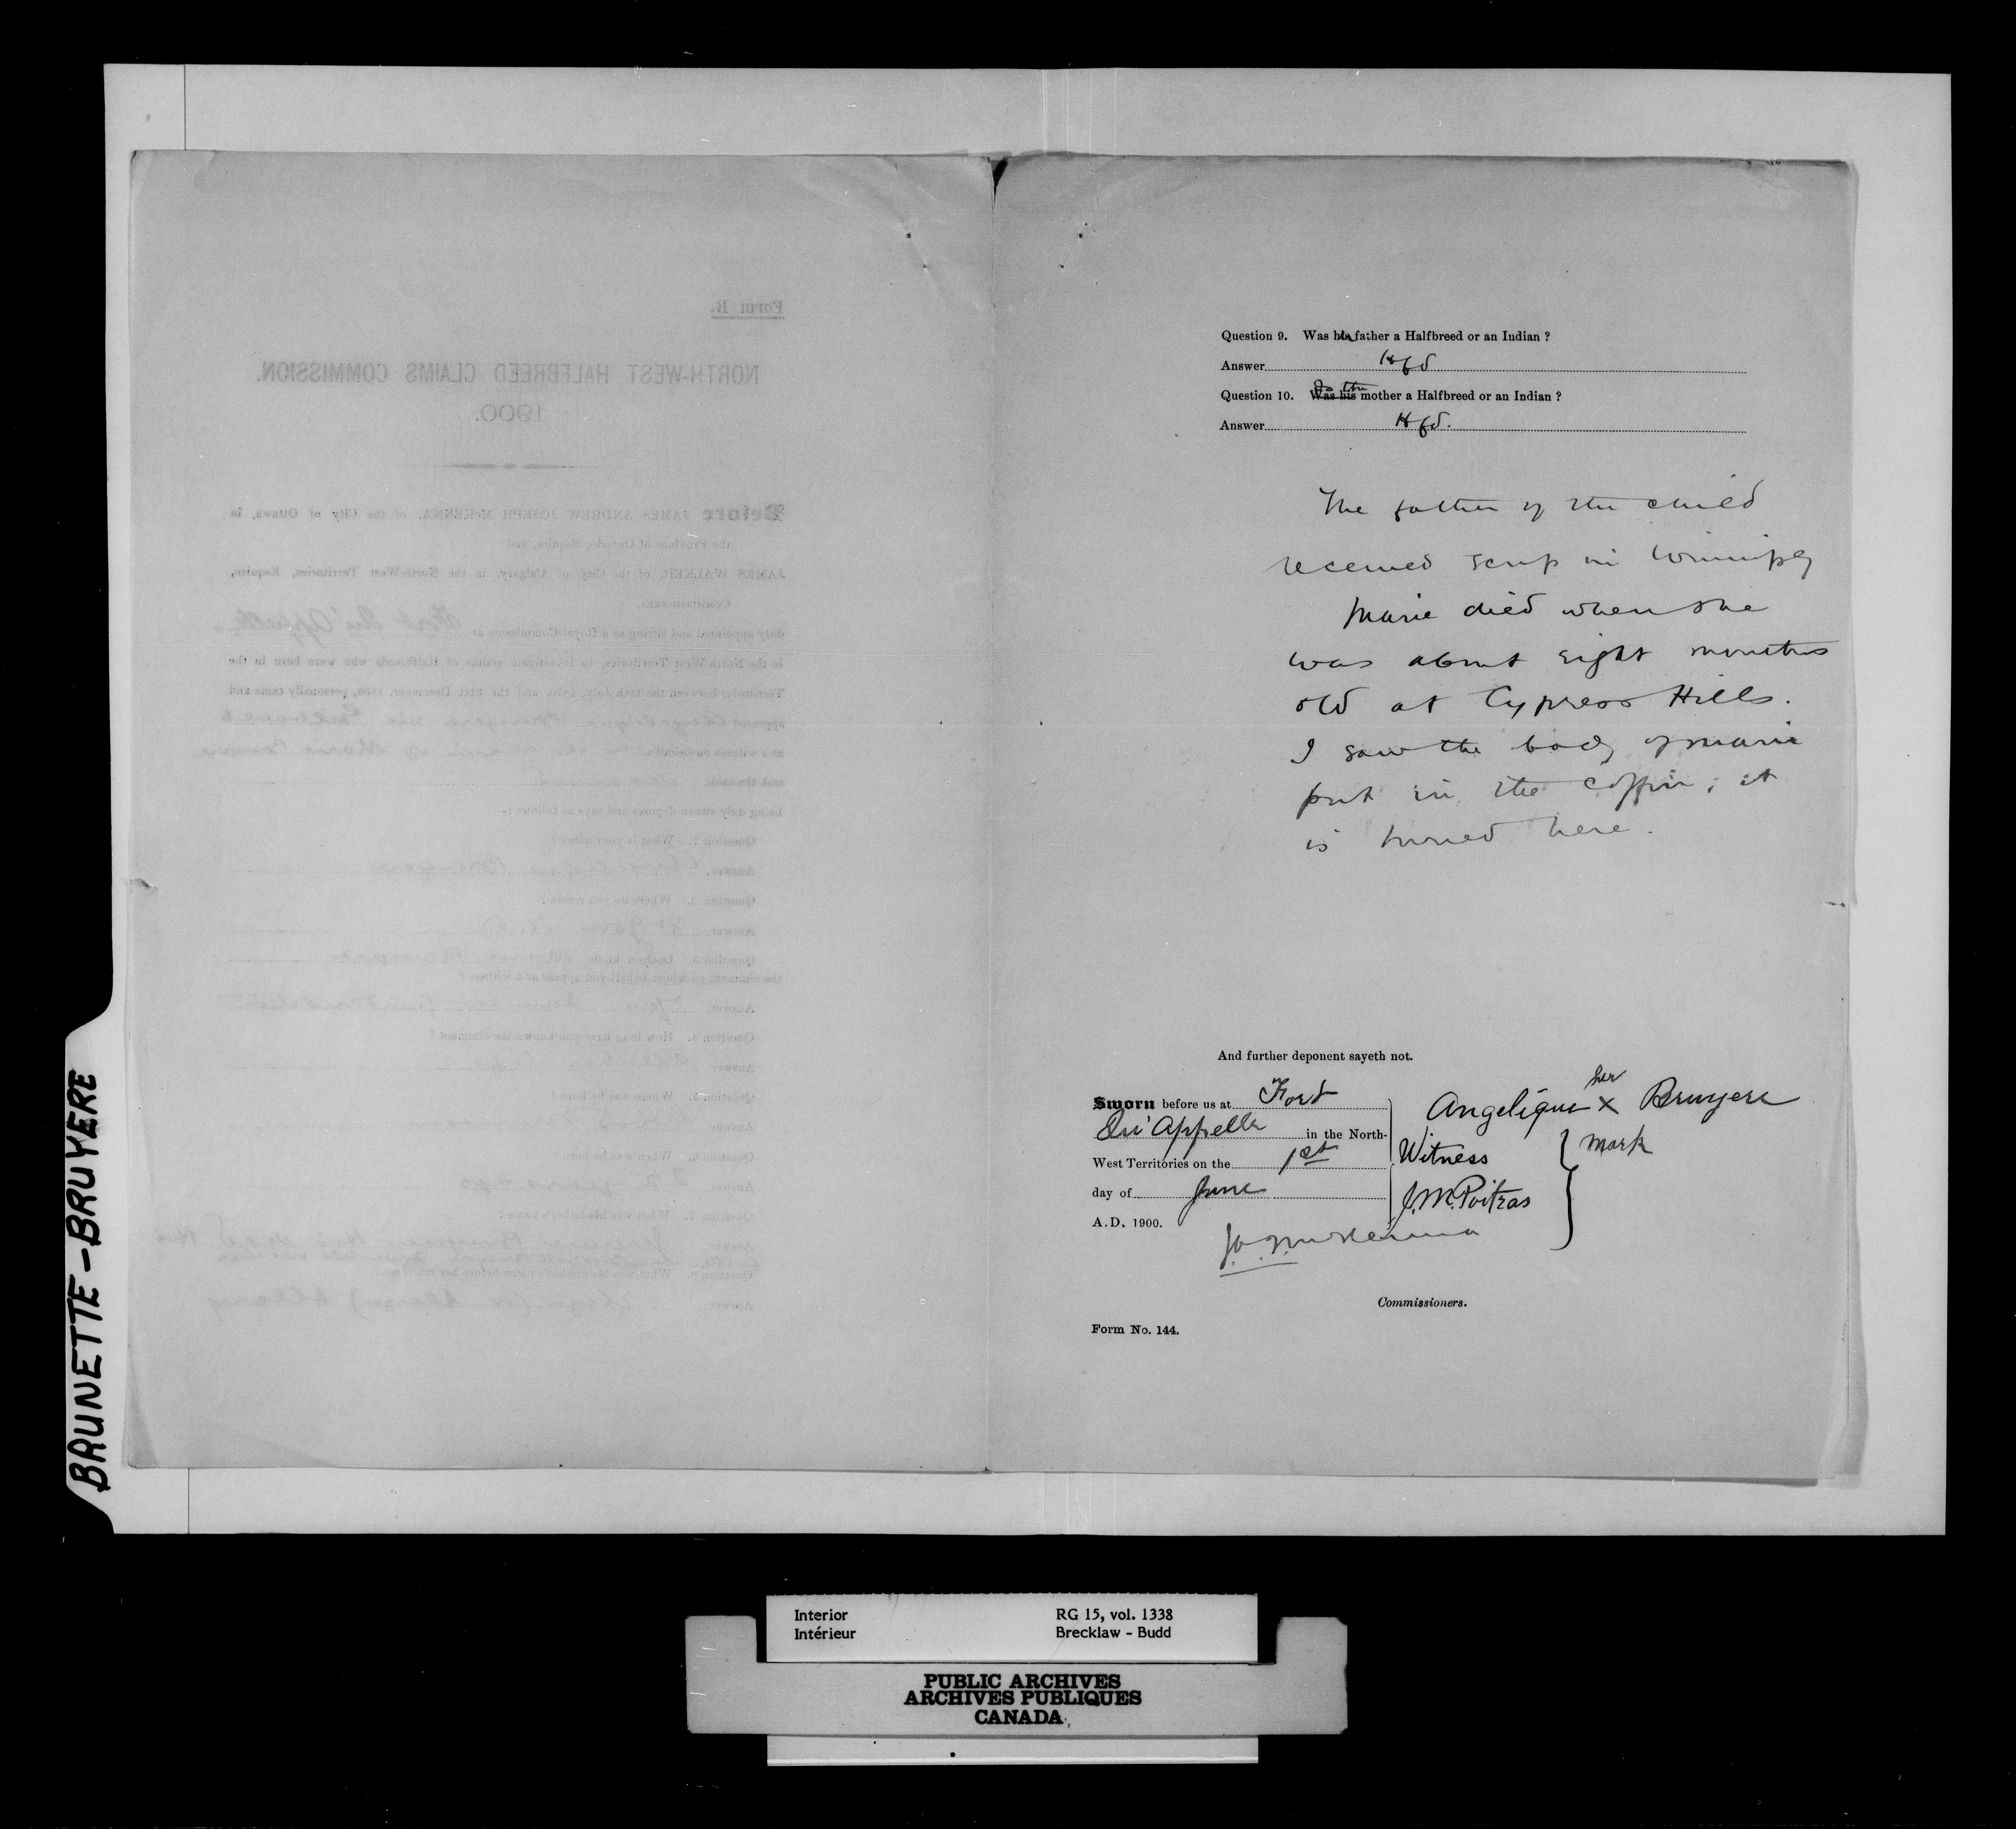 Question 9. Was her father a Halfbreed or an Indian ?
Answer Hfd
Is the
Question 10. Was his mother a Halfbreed or an Indian ?
Answer Hfd.
The father of the child
received scrip in Winnipeg
Marie died when she
was about eight months
old at Cypress Hills.
I saw the body of Marie
put in the coffin; it
is buried here.
And further deponent sayeth not.
Sworn before us at Fort
Qu'Appelle in the North-
West Territories on the 1st
day of June
A.D. 1900.
her
Angelique x Bruyere
mark
Witness
J.M. Poitras
Commissioners.
Form No. 144.
Form B.
NORTH-WEST HALFBREED CLAIMS COMMISSION.
1900.
Before JAMES ANDREW JOSEPH McKENNA, of the City of Ottawa, in
the Province of Ontario, Esquire, and
JAMES WALKER, of the City of Calgary, in the North-West Territories, Esquire,
COMMISSIONERS,
duly appointed and sitting as a Royal Commission at Fort Qu'Appelle
in the North West Territories, to investigate claims of Halfbreeds who were born in the
Territories between the 15th July, 1870, and the 31st December, 1885, personally came and
being duly sworn deposes and says as follows :—
Question 1. What is your name ?
Question 2. Where do you reside ?
Answer
Question 3. Did you know Marie Bruyere
the claimant on whose behalf you appear as a witness ?
Answer
Question 4. How long have you known the claimant ?
Answer
Question 5. Where was he born ?
Answer
Question 6. When was he born ?
Answer
Question 7. What was his father's name ?
Answer
Question 8. What was his mother's name before her marriage ?
Answer
BRUNETTE-BRUYERE
Interior RG 15, vol. 1338
Intérieur Brecklaw - Budd
PUBLIC ARCHIVES
ARCHIVES PUBLIQUES
CANADA